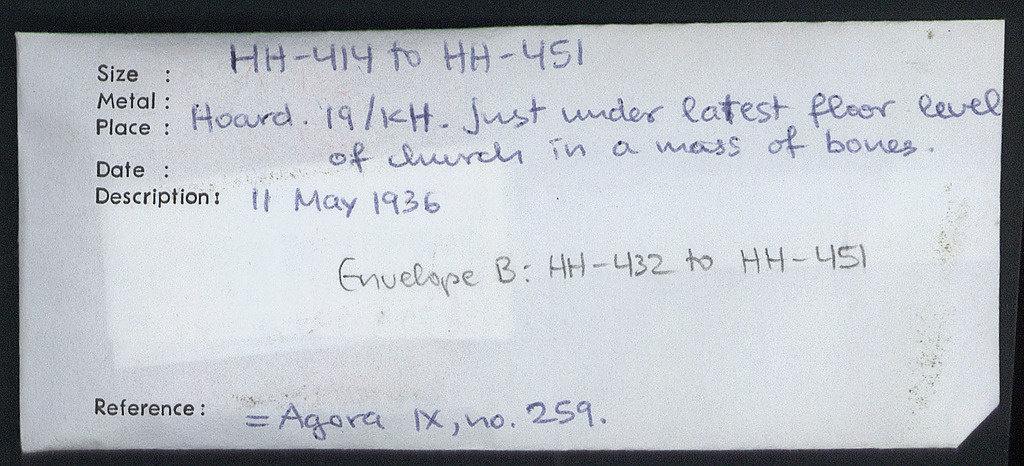 HH-414 to HH-451
Size :
Metal :
Place : Hoard. 19/KH. Just under latest floor level
of church in a mass of bones.
Date :
Description: 11 May 1936
Envelope B: HH-432 to HH-451
Reference: = Agora IX, no. 259.